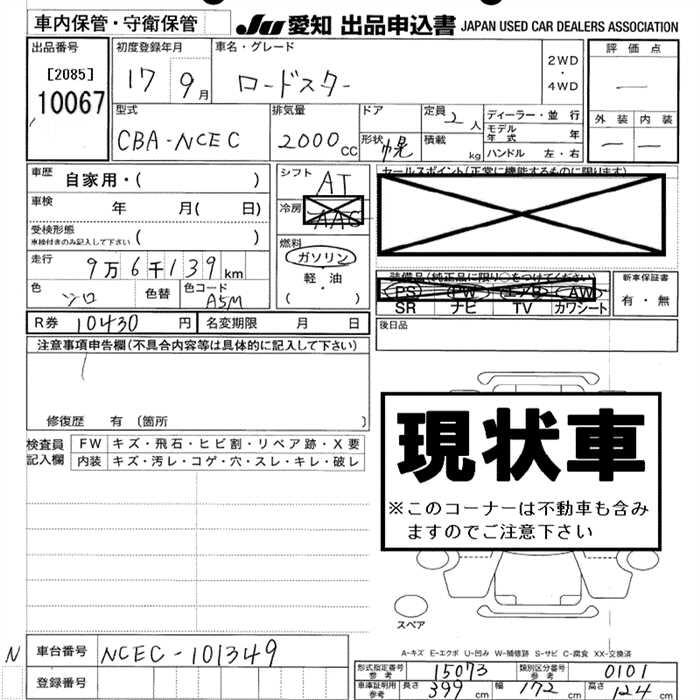 車内保管・守衛保管 JU 愛知 出品申込書 JAPAN USED CAR DEALERS ASSOCIATION
出品番号 [2085] 10067
初度登録年月 17 9月
車名・グレード ロードスター
2WD・4WD
評価点 —
外装 — 内装 —
型式 CBA-NCEC
排気量 2000cc
ドア 形状 幌
定員 2人
積載 kg
ディーラー・並行
モデル年式 年
ハンドル 左・右
車歴 自家用・( )
車検 年 月( 日)
受検形態 車検付きのみ記入して下さい ( )
走行 9万6千139km
色 シロ 色替 色コード A5M
シフト AT
冷房 AAC
燃料 ガソリン 軽・油 ( )
セールスポイント(正常に機能するものに限ります)
装備品(純正品に限り○をつけてください)
PS PW エアB AW
SR ナビ TV カワシート
新車保証書 有・無
R券 10430円 名変期限 月 日
後日品
注意事項申告欄(不具合内容等は具体的に記入して下さい)
修復歴 有 (箇所 )
検査員記入欄
FW キズ・飛石・ヒビ割・リペア跡・X要
内装 キズ・汚レ・コゲ・穴・スレ・キレ・破レ
現状車
※このコーナーは不動車も含み
ますのでご注意下さい
スペア
A-キズ E-エクボ U-凹み W-補修跡 S-サビ C-腐食 XX-交換済
N 車台番号 NCEC-101349
登録番号
形式指定番号 参考 15073 類別区分番号 参考 0101
車庫証明用 参考 長さ 399cm 幅 172cm 高さ 124cm